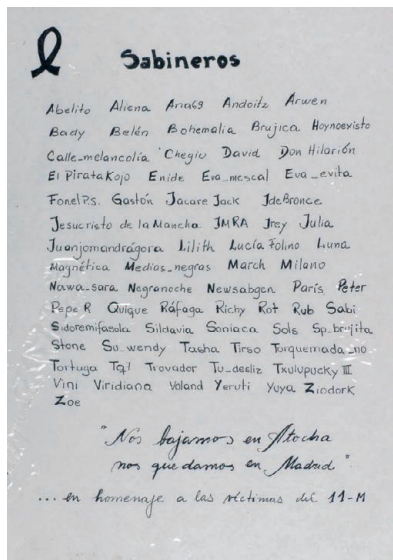 Sabineros
Abelito Aliena Aria69 Andoitz Arwen
Bady Belén Bohemalia Brujica Hoynoexisto
Calle_melancolía Chegio David Don Hilarión
El Pirata Kojo Enide Eva_mescal Eva_evita
Gastón Jacare Jack JdeBronce
Jesucristo de la Mancha JMRA Jrey Julia
Juanjomandrágora Lilith Lucía Folino Luna
Magnética Medias_negras March Milano
Nawa_sara Negranoche Newsabgen París Peter
Pepe R Quique Ráfaga Richy Rot Rub Sabi
Sidoremifasola Sildavia Soniaca Sols Sp_brujita
Stone Su_wendy Tasha Tirso Torquemada_no
Tortuga Trovador Tu_desliz Txulupucky III
Vini Viridiana Yoland Yeruti Yuya Ziodork
Zoe
"Nos bajamos en Atocha
nos quedamos en Madrid".
... en homenaje a las víctimas del 11-M